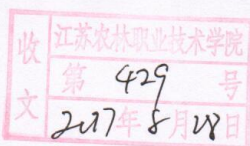 收文
江苏农林职业技术学院
第 429 号
2017年8月28日